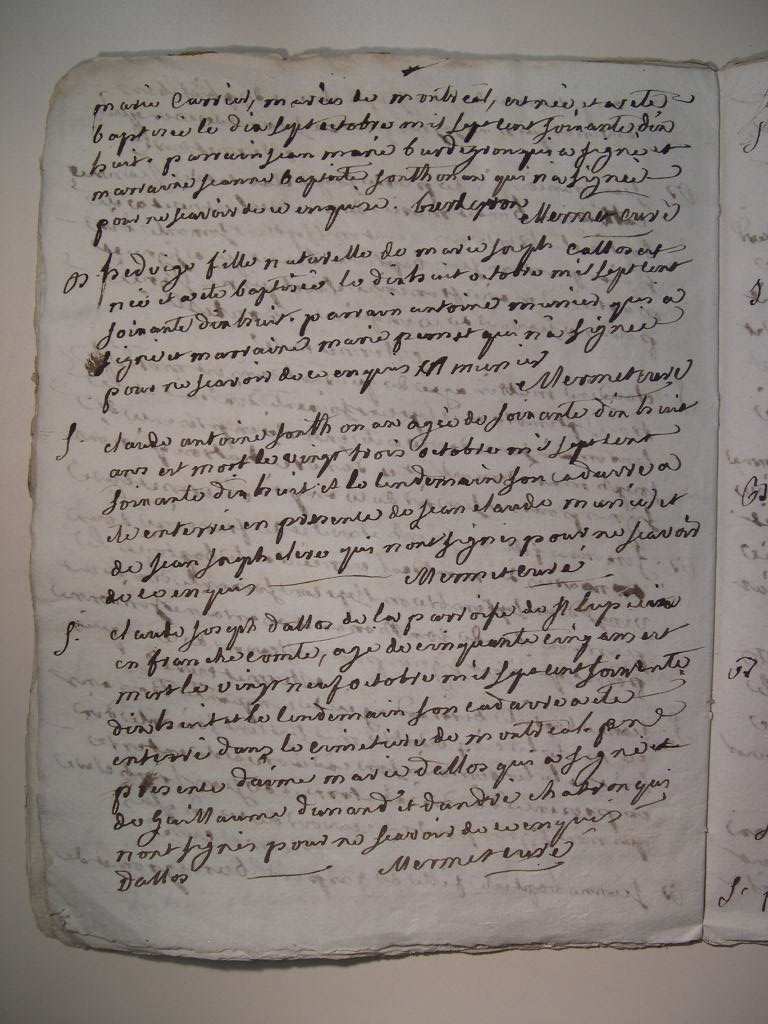 marie Carrier, mariés de montreal, est née, et a eté
baptisée le dix sept octobre mil sept cent soixante dix
huit. parrain jean marie burdeyron qui a signé et
marraine jeanne baptiste sonthonax qui n'a signée
pour ne scavoir de ce enquise. burdeyron Mermet curé
B hedvige fille naturelle de marie joseph Callos est
née et a eté baptisée le dix huit octobre mil sept cent
soixante dix huit. parrain antoine munier qui a
signé et marraine marie pernet qui n'a signée
pour ne scavoir de ce enquis munier
Mermet curé
S. claude antoine sonthonax agée de soixante dix huit
ans est mort le vingt trois octobre mil sept cent
soixante dix huit et le lendemain son cadavre a
ete enterré en presence de jean claude munier et
de jean joseph clerc qui n'ont signés pour ne scavoir
de ce enquis Mermet curé
S. claude joseph Dallos de la parroise de st lupicin
en franche comté, age de cinquante cinq ans est
mort le vingt neuf octobre mil sept cent soixante
dix huit et le lendemain son cadavre a ete
enterré dans le cimetiere de montreal.
presence d'aimé marie dellos qui a signé et
de Guillaume dunand et d'andré chatron qui
n'ont signés pour ne scavoir de ce enquis
Dallos Mermet curé